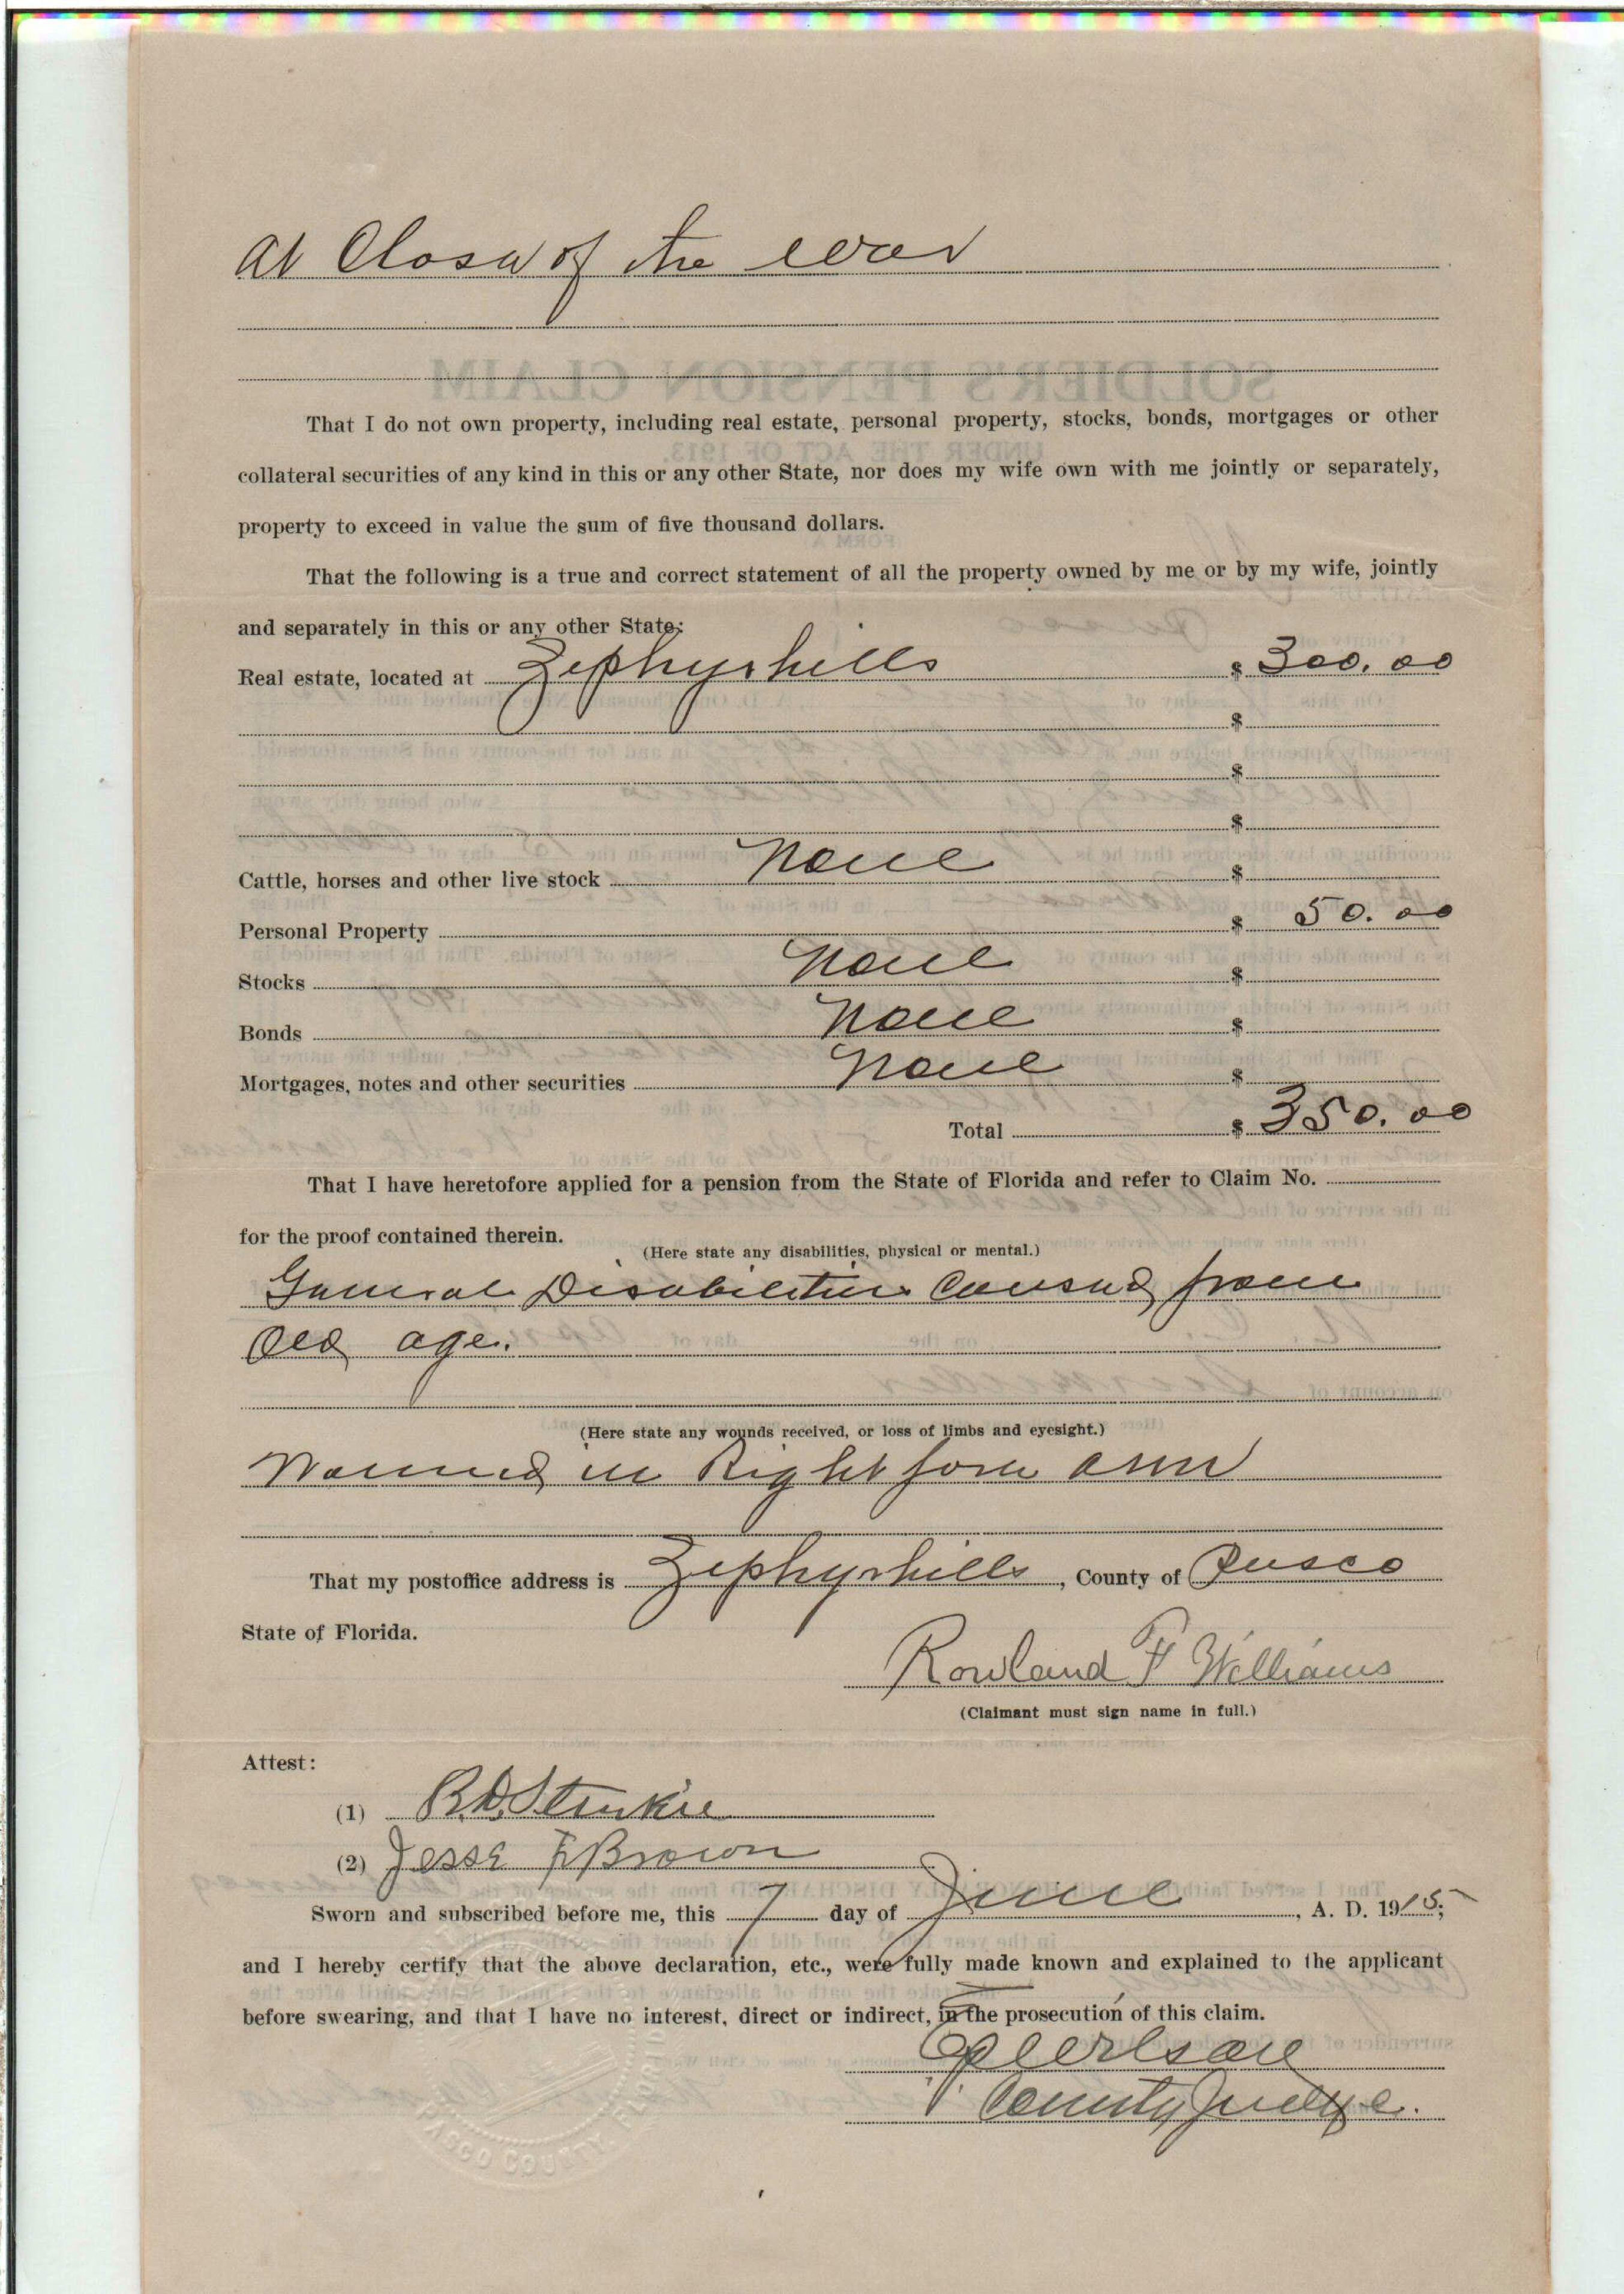 At Close of the war
That I do not own property, including real estate, personal property, stocks, bonds, mortgages or other
collateral securities of any kind in this or any other State, nor does my wife own with me jointly or separately,
property to exceed in value the sum of five thousand dollars.
That the following is a true and correct statement of all the property owned by me or by my wife, jointly
and separately in this or any other State:
Real estate, located at Zephyrhills $ 300.00
$
$
$
Cattle, horses and other live stock None $
Personal Property $ 50.00
Stocks None $
Bonds None $
Mortgages, notes and other securities None $
Total $ 350.00
That I have heretofore applied for a pension from the State of Florida and refer to Claim No.
for the proof contained therein.
(Here state any disabilities, physical or mental.)
General Disabilities Caused from
Old age.
(Here state any wounds received, or loss of limbs and eyesight.)
Wound in Right fore arm
That my postoffice address is Zephyrhills, County of Pasco
State of Florida.
Rowland F Williams
(Claimant must sign name in full.)
Attest:
(1) R.D.
(2) Jesse F Brown
Sworn and subscribed before me, this 7 day of June, A. D. 1915;
and I hereby certify that the above declaration, etc., were fully made known and explained to the applicant
before swearing, and that I have no interest, direct or indirect, in the prosecution of this claim.
County Judge.
PASCO COUNTY